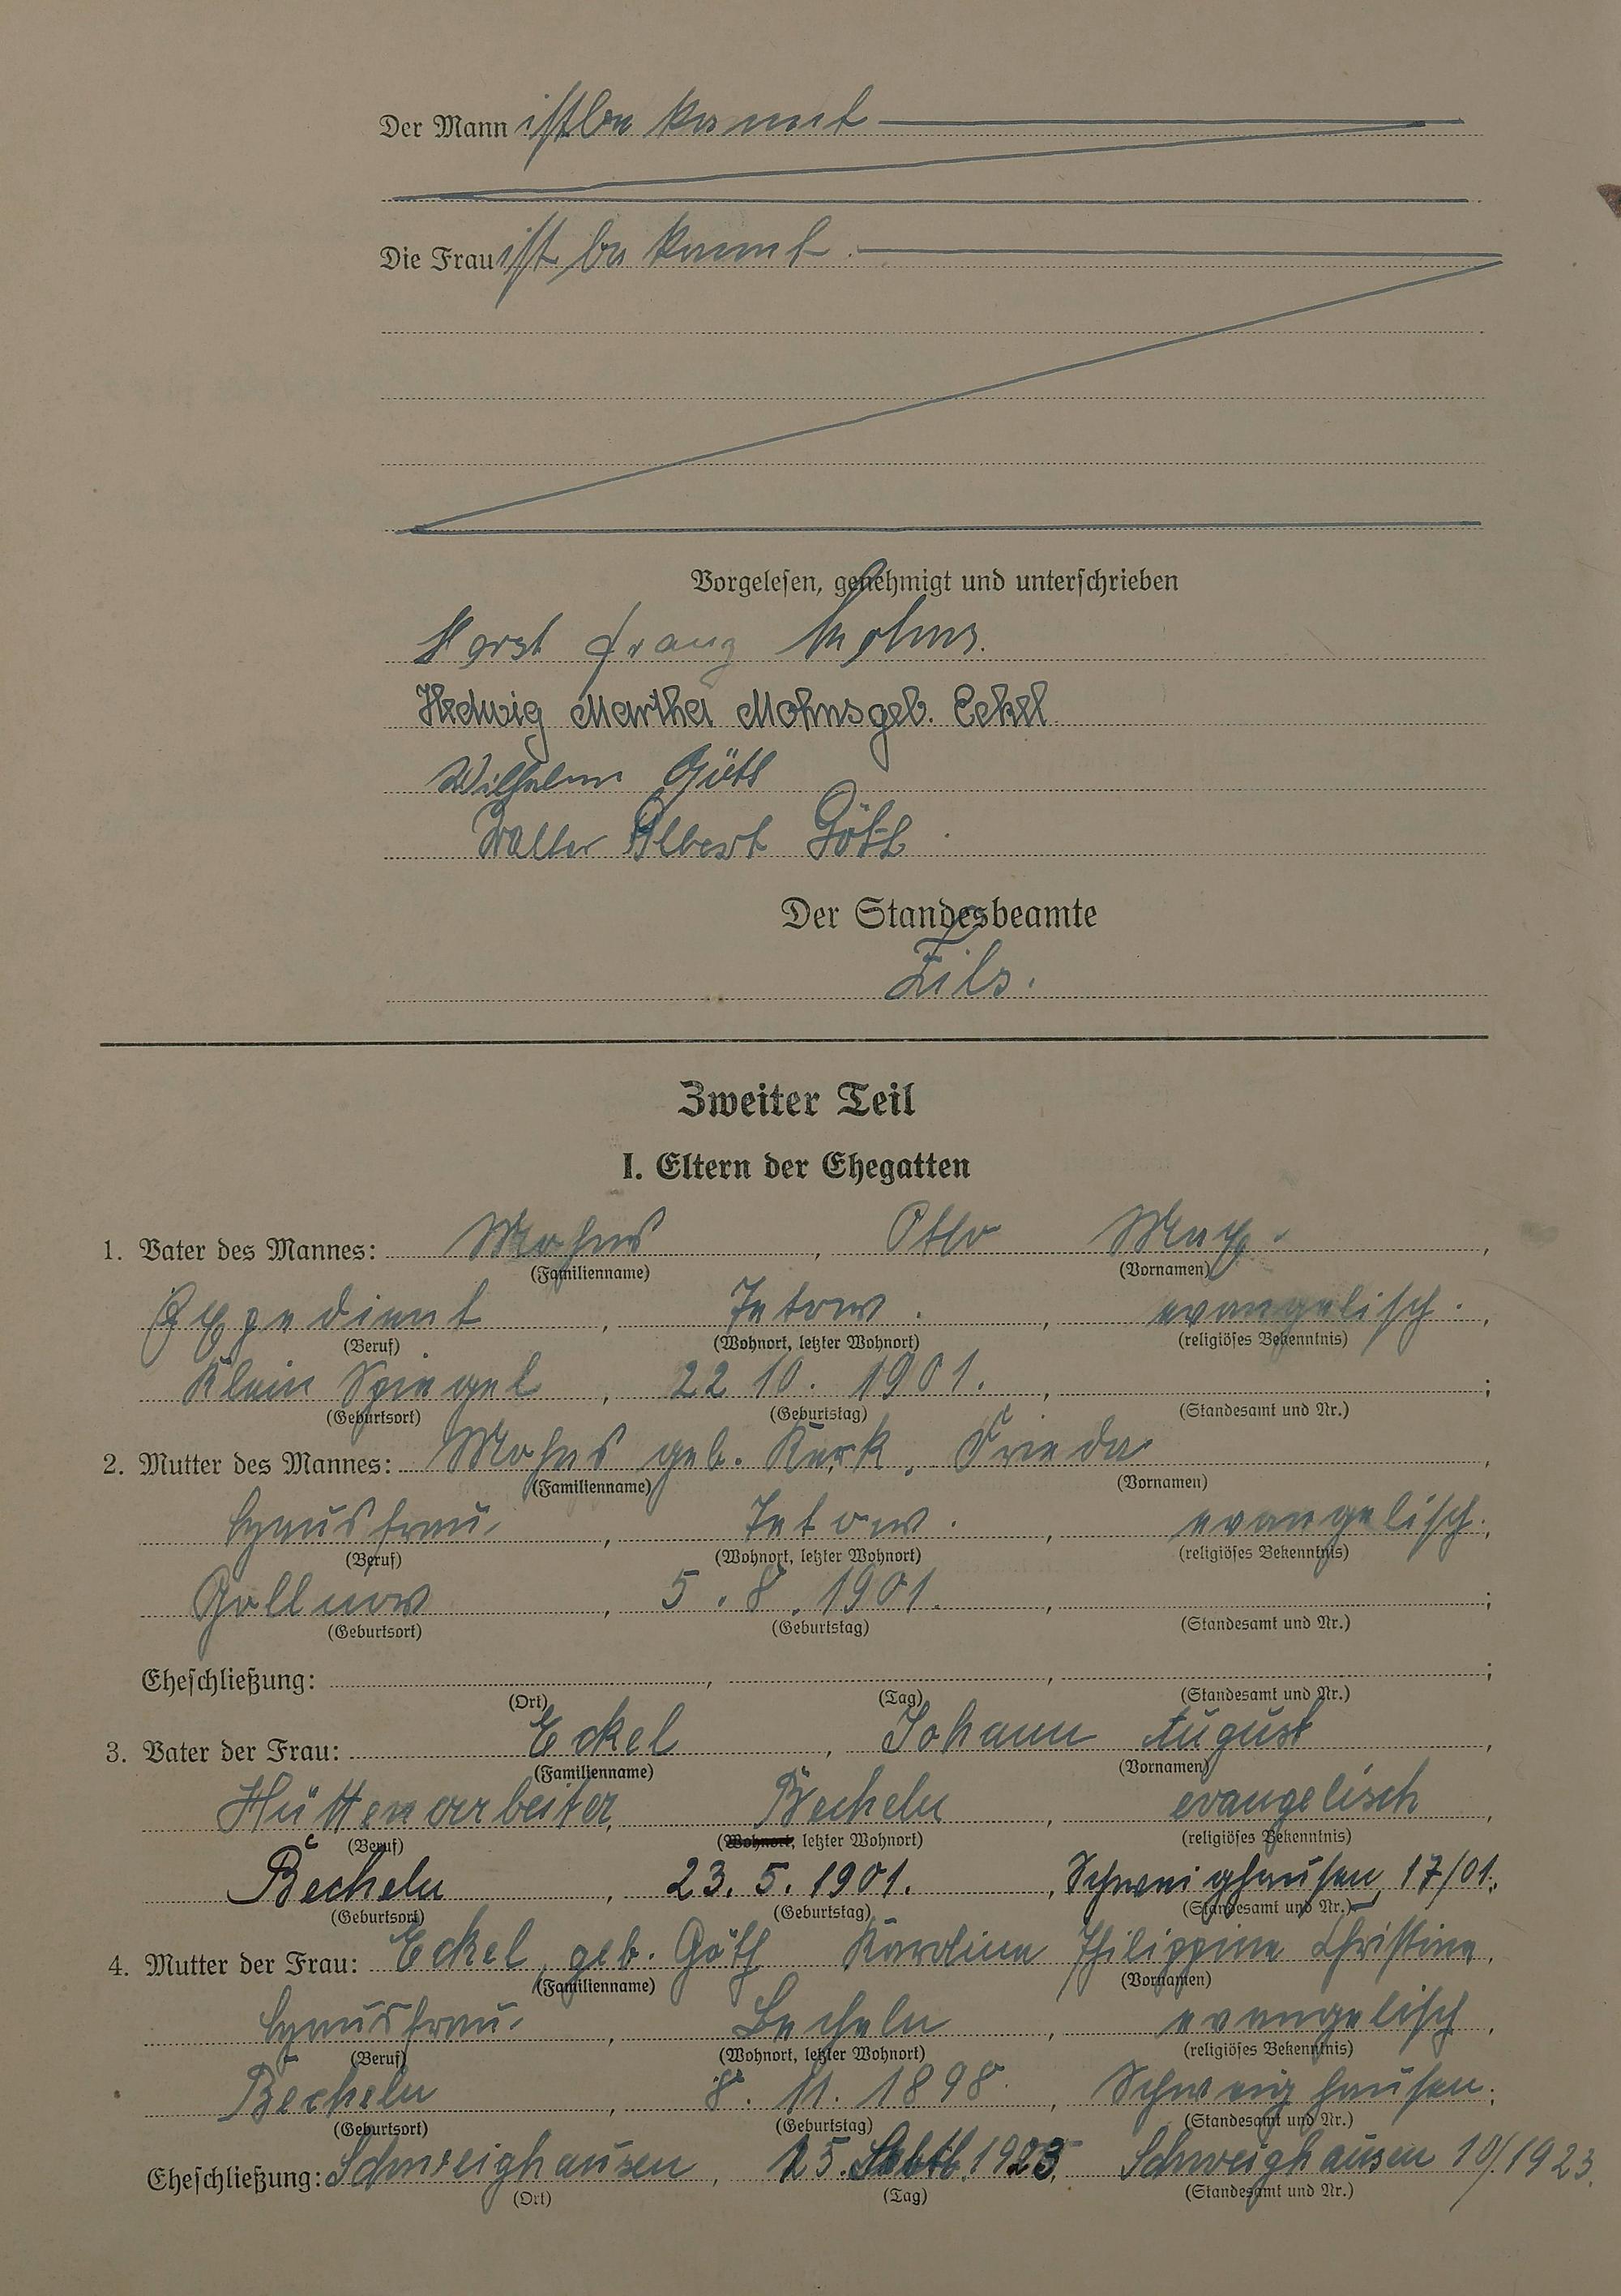 Der Mann ist bekannt
Die Frau ist bekannt.
Vorgelesen, genehmigt und unterschrieben
Horst Franz Mohns.
Hedwig Martha Mohns geb. Eckel
Wilhelm Göth
Walter Albert Göth
Der Standesbeamte
Zils.
Zweiter Teil
I. Eltern der Ehegatten
1. Vater des Mannes: Mohns, Otto Max.,
(Familienname) (Vornamen)
Expedient, Jetow., evangelisch.,
(Beruf) (Wohnort, letzter Wohnort) (religiöses Bekenntnis)
Klein Spiegel, 22 10. 1901.,;
(Geburtsort) (Geburtstag) (Standesamt und Nr.)
2. Mutter des Mannes: Mohns geb. Kurk, Frieda,
(Familienname) (Vornamen)
Hausfrau, Jetow., evangelisch.,
(Beruf) (Wohnort, letzter Wohnort) (religiöses Bekenntnis)
Gollnow, 5. 8. 1901.,;
(Geburtsort) (Geburtstag) (Standesamt und Nr.)
Eheschließung: , , ;
(Ort) (Tag) (Standesamt und Nr.)
3. Vater der Frau: Eckel, Johann August,
(Familienname) (Vornamen)
Hüttenarbeiter, Becheln, evangelisch,
(Beruf) (Wohnort, letzter Wohnort) (religiöses Bekenntnis)
Becheln, 23. 5. 1901., Schweighausen, 17/01.;
(Geburtsort) (Geburtstag) (Standesamt und Nr.)
4. Mutter der Frau: Eckel, geb. Göth Karoline Philippine Christine,
(Familienname) (Vornamen)
Hausfrau, Becheln, evangelisch,
(Beruf) (Wohnort, letzter Wohnort) (religiöses Bekenntnis)
Becheln, 8. 11. 1898., Schweighausen;
(Geburtsort) (Geburtstag) (Standesamt und Nr.)
Eheschließung: Schweighausen, 1923, Schweighausen 10/1923.
(Ort) (Tag) (Standesamt und Nr.)